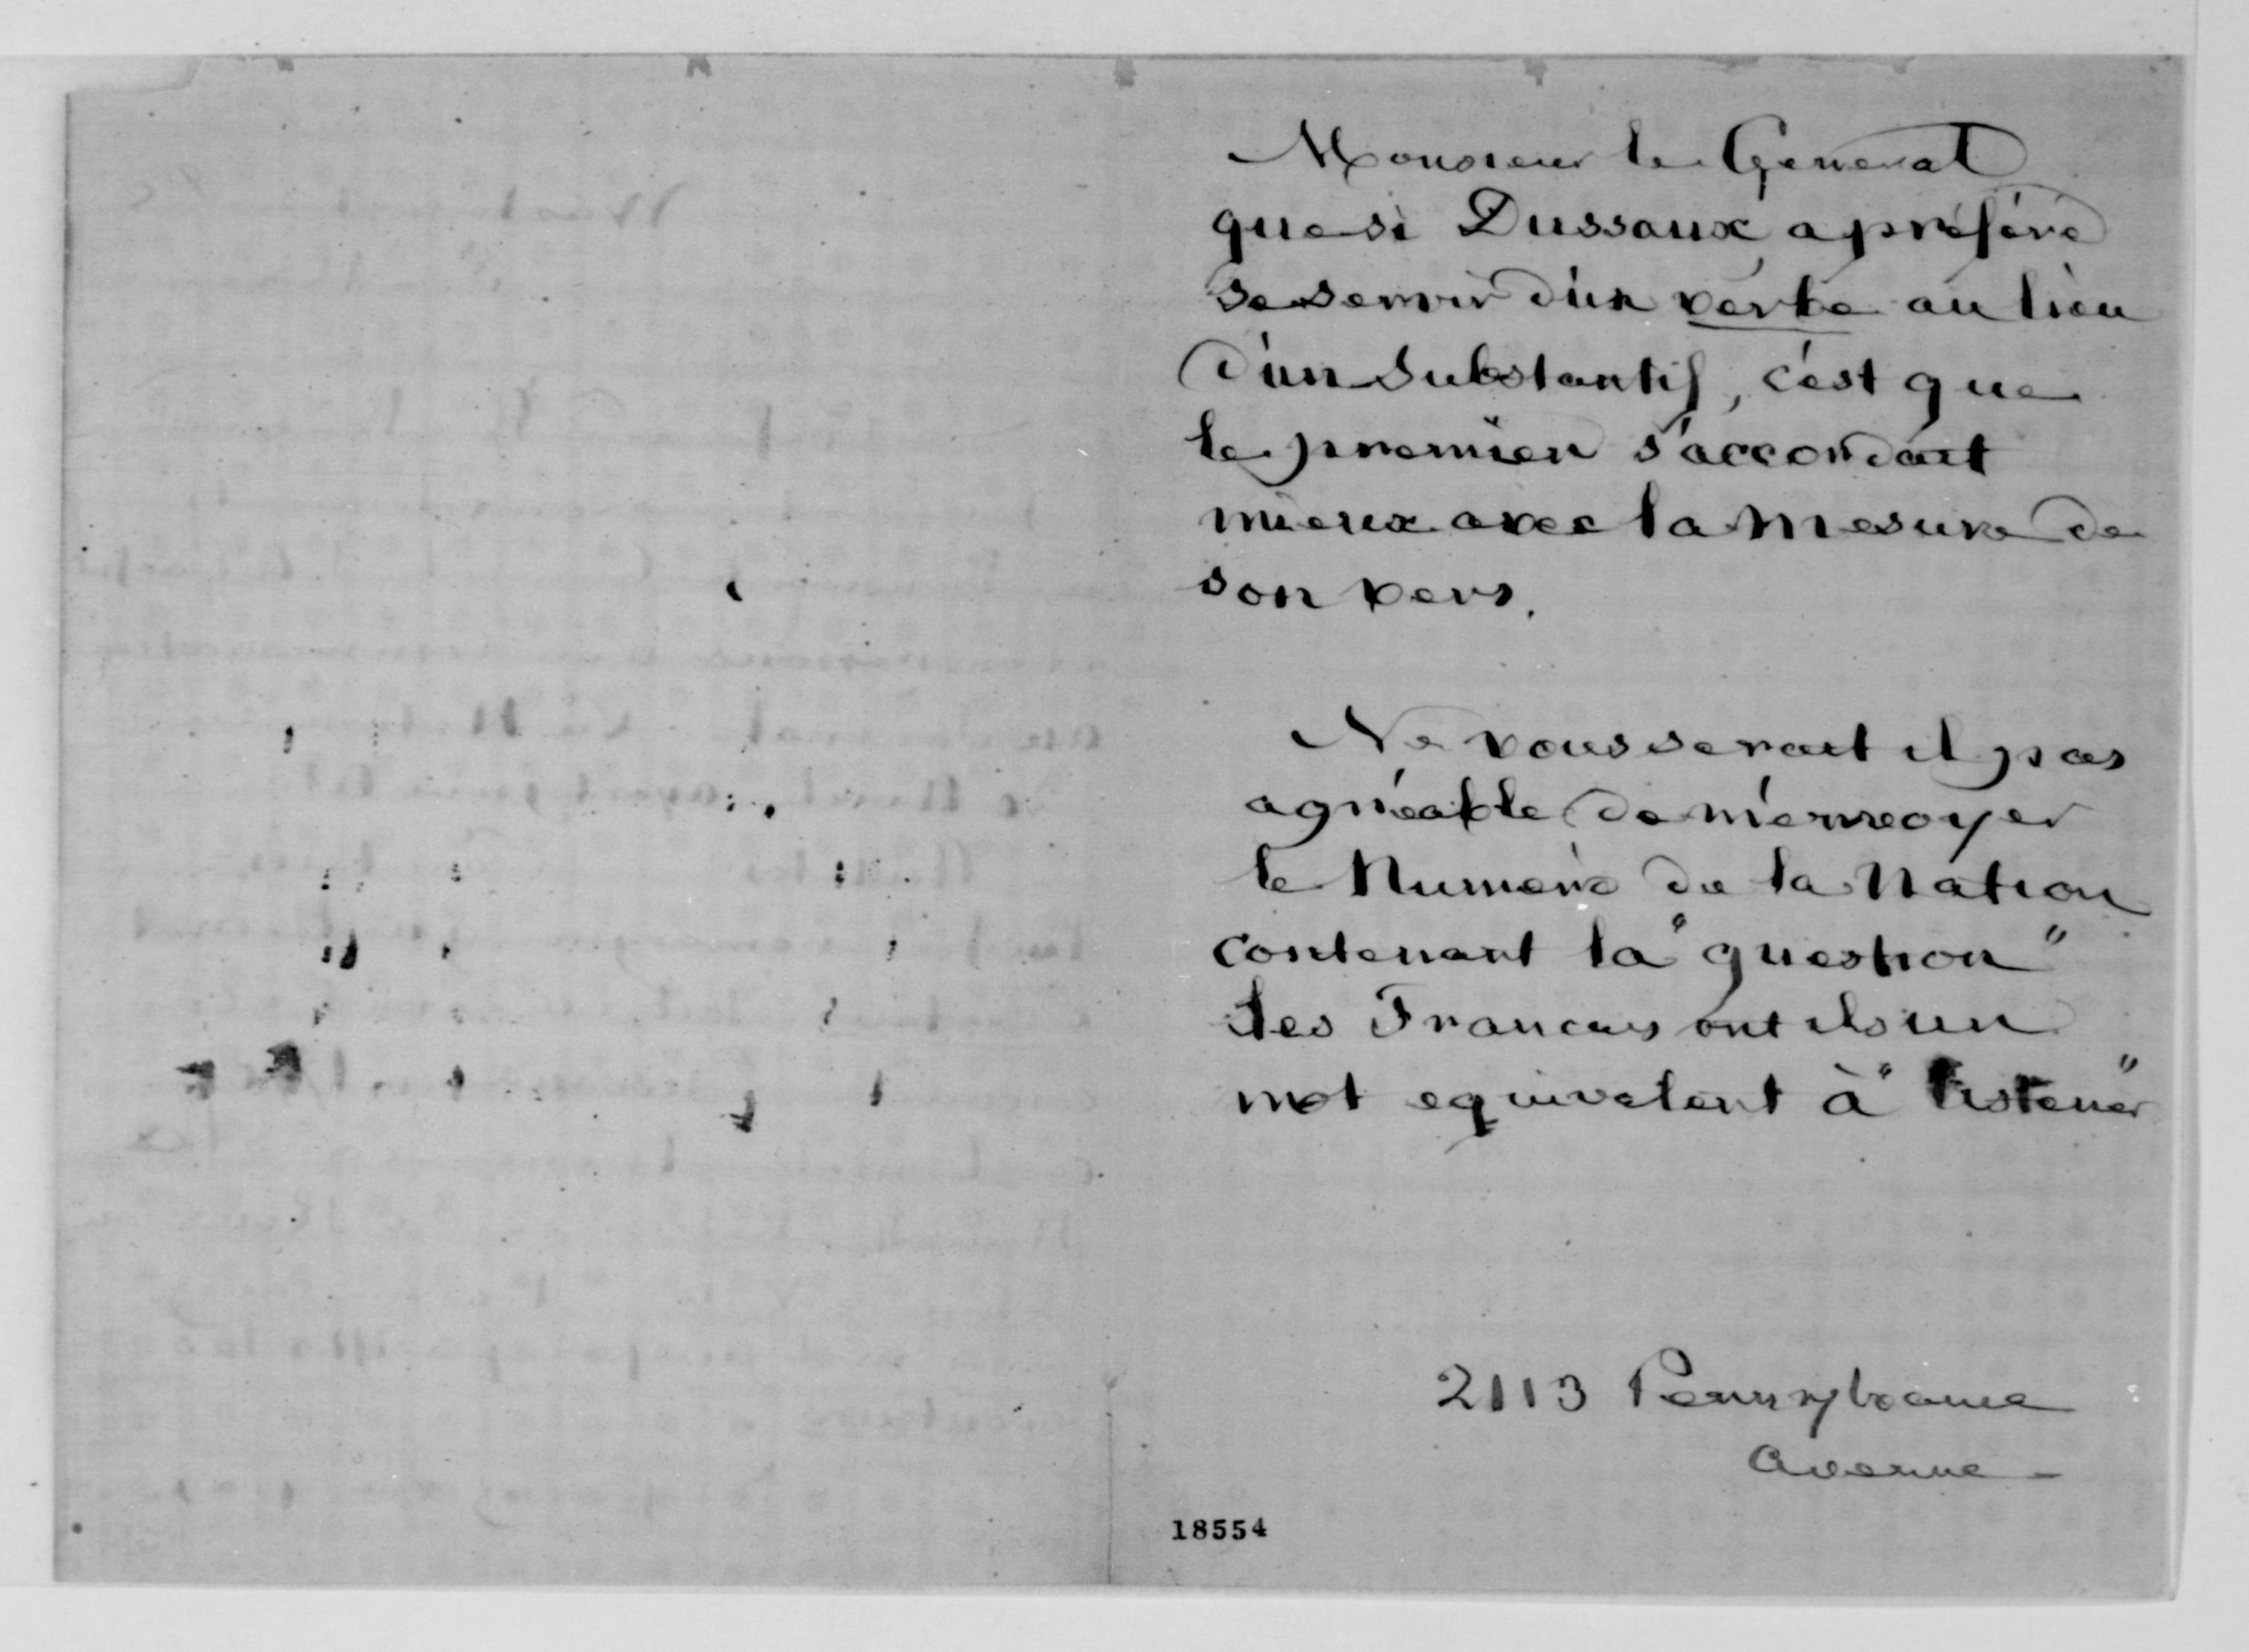 Monsieur le General
que si Dussaux, a préféré
se servir d'un verbe au lieu
d'un substantif, c'est que
le premier s'accordait
mieux avec la mesure de
son vers.
Ne vous serait il pas
agréable de m'envoyer
le Numéro de la Nation
contenant la "question"
Les Francais ont ils un
mot equivalent à "listener"
2113 Pennsylvanie
Avenue -
18554